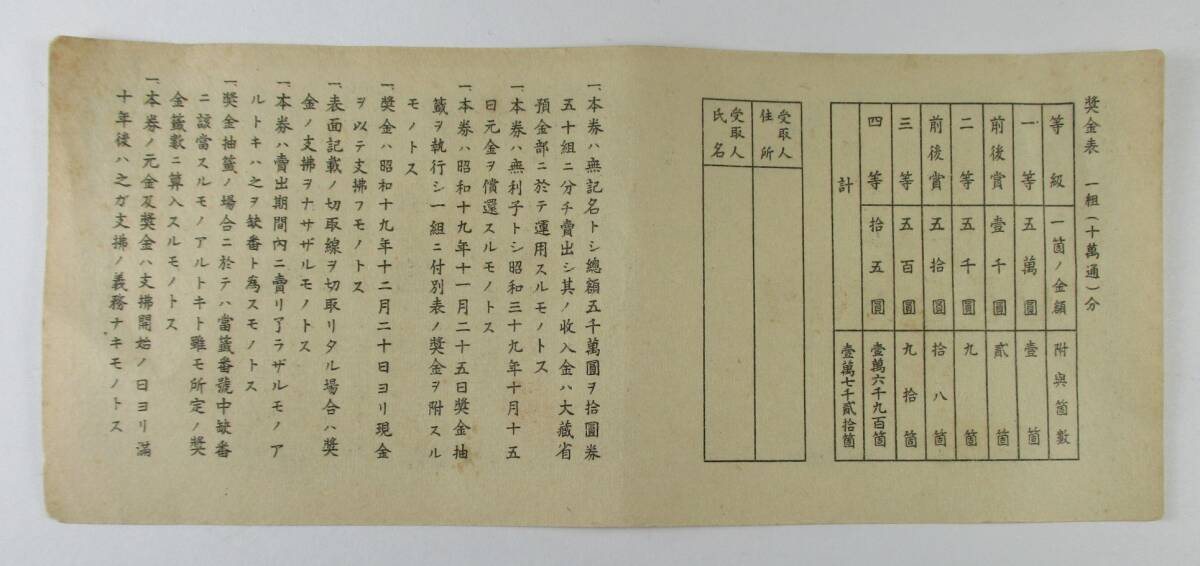 獎金表 一組(十萬通)分
等級 一箇ノ金額 附與箇數
一等 五萬圓 壹箇
前後賞 壹千圓 貳箇
二等 五千圓 九箇
前後賞 五拾圓 拾八箇
三等 五百圓 九拾箇
四等 拾五圓 壹萬六千九百箇
計 壹萬七千貳拾箇
受取人住所
受取人氏名
一、本券ハ無記名トシ總額五千萬圓ヲ拾圓券
五十組ニ分チ賣出シ其ノ收入金ハ大藏省
預金部ニ於テ運用スルモノトス
一、本券ハ無利子トシ昭和三十九年十月十五
日元金ヲ償還スルモノトス
一、本券ハ昭和十九年十一月二十五日獎金抽
籤ヲ執行シ一組ニ付別表ノ獎金ヲ附スル
モノトス
一、獎金ハ昭和十九年十二月二十日ヨリ現金
ヲ以テ支拂フモノトス
一、表面記載ノ切取線ヲ切取リタル場合ハ獎
金ノ支拂ヲナサザルモノトス
一、本券ハ賣出期間內ニ賣リ了ラザルモノア
ルトキハ之ヲ缺番ト爲スモノトス
一、獎金抽籤ノ場合ニ於テハ當籤番號中缺番
ニ該當スルモノアルトキト雖モ所定ノ獎
金籤數ニ算入スルモノトス
一、本券ノ元金及獎金ハ支拂開始ノ日ヨリ滿
十年後ハ之ガ支拂ノ義務ナキモノトス